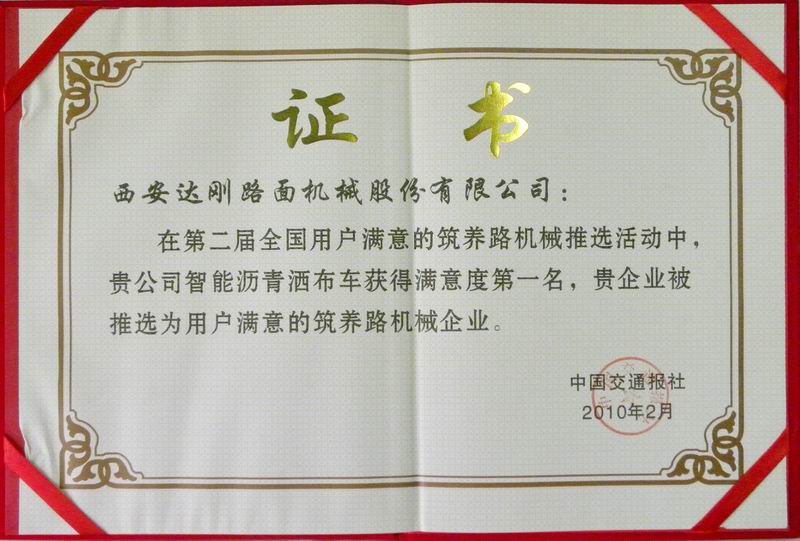 证书
西安达刚路面机械股份有限公司：
在第二届全国用户满意的筑养路机械推选活动中，
贵公司智能沥青洒布车获得满意度第一名，贵企业被
推选为用户满意的筑养路机械企业。
中国交通报社
2010年2月